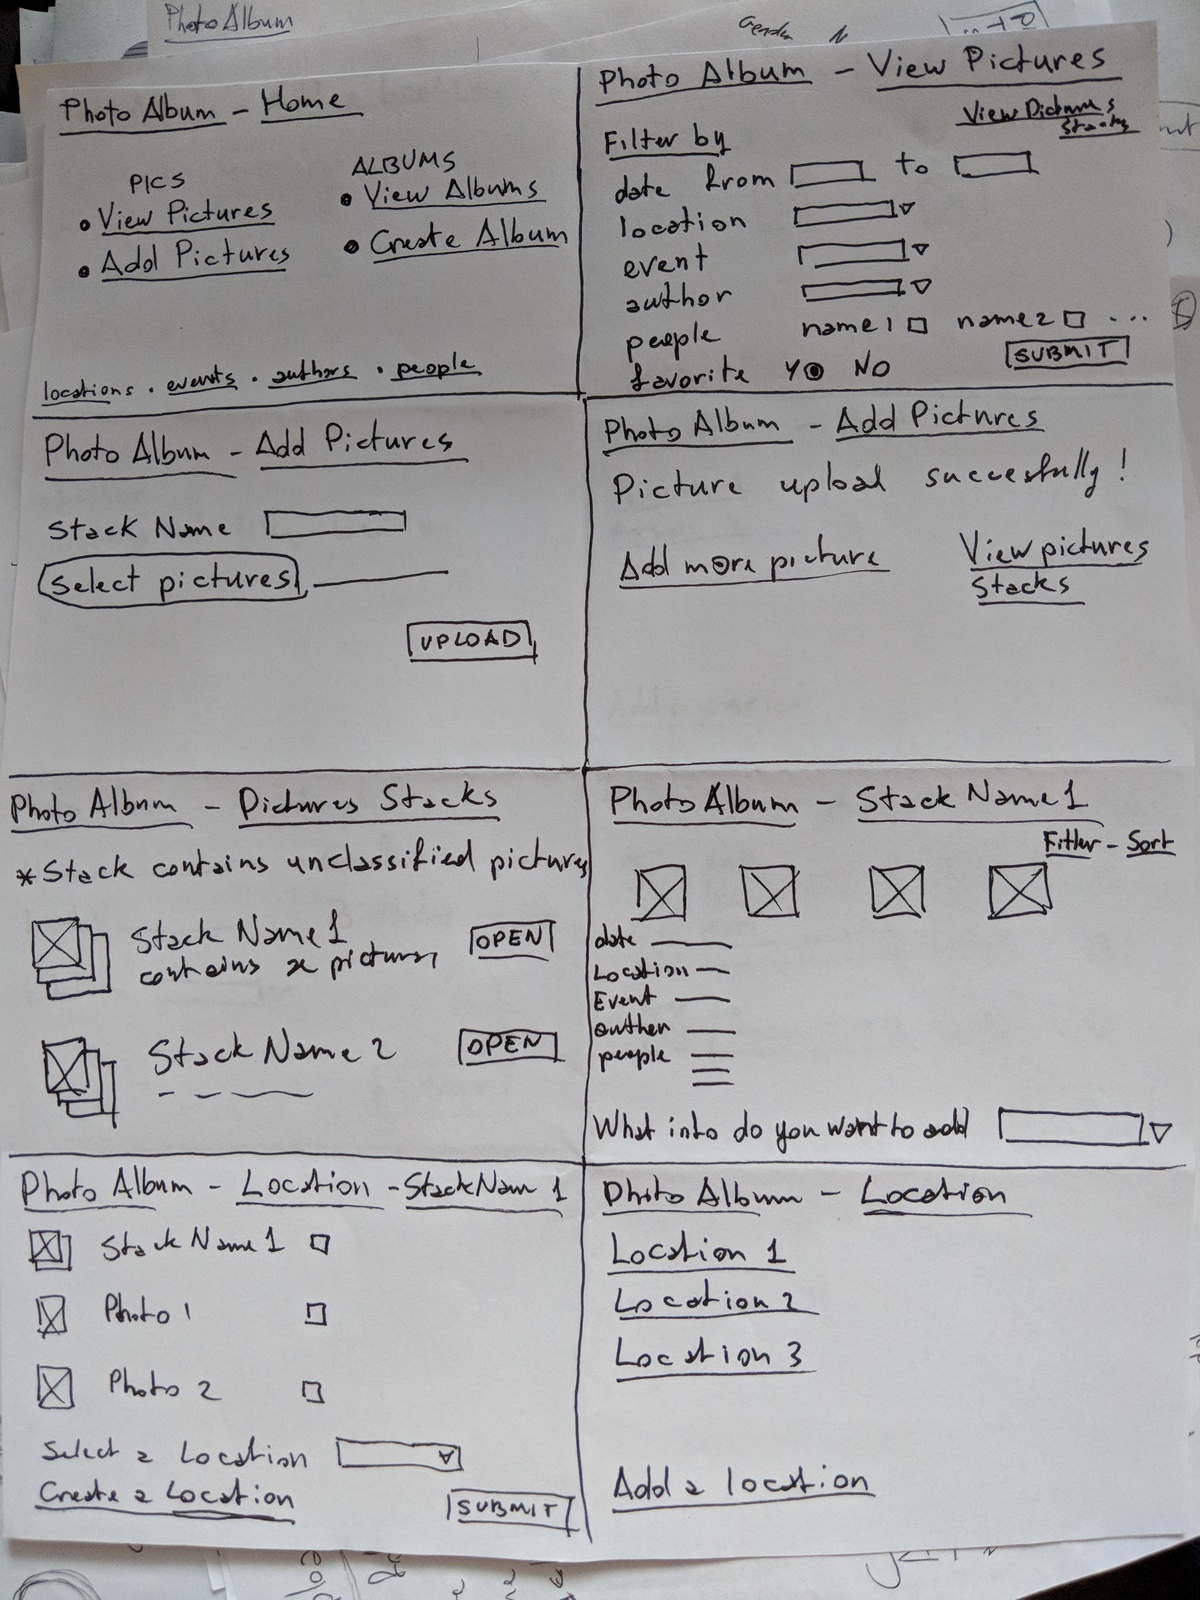 Photo Album
Gender N
Photo Album - Home
PICS
• View Pictures
• Add Pictures
ALBUMS
• View Albums
• Create Album
locations • events • authors • people
Photo Album - View Pictures
View Pictures
Stacks
Filter by
date from to
location
event
author
people name1 name2 ...
favorite Y NO
SUBMIT
Photo Album - Add Pictures
Stack Name
Select pictures
UPLOAD
Photo Album - Add Pictures
Picture upload succesfully!
Add more picture
View pictures
Stacks
Photo Album - Pictures Stacks
* Stack contains unclassified pictures
Stack Name 1
contains x pictures
OPEN
Stack Name 2
OPEN
Photo Album - Stack Name 1
Filter - Sort
date
Location
Event
author
people
What info do you want to add
Photo Album - Location - Stack Nam 1
Stack Name 1
Photo 1
Photo 2
Select a Location
Create a Location
SUBMIT
Photo Album - Location
Location 1
Location 2
Location 3
Add a location